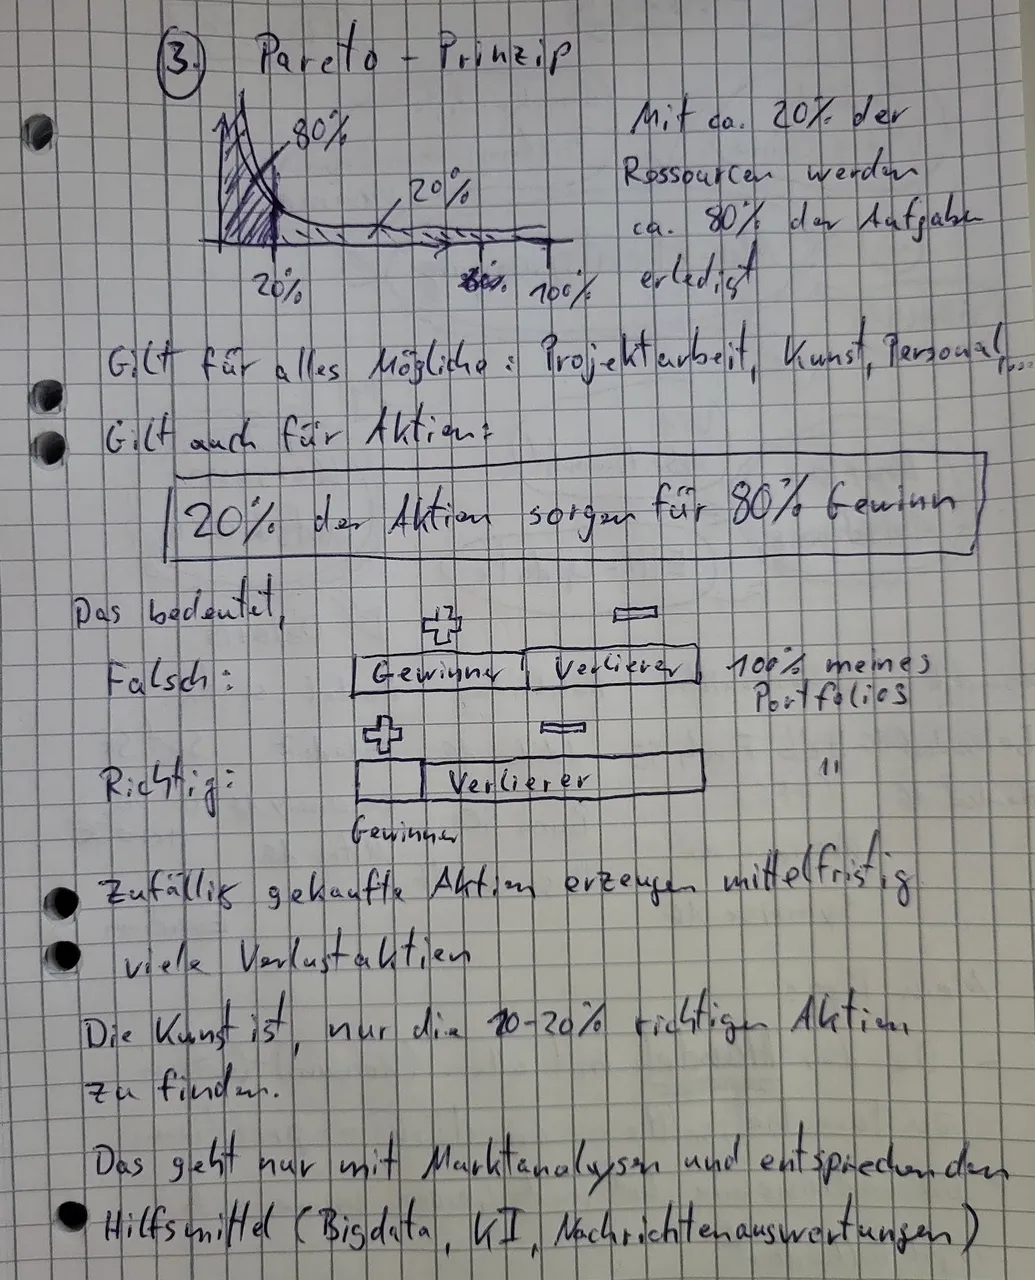 3. Pareto - Prinzip
80%
20%
20%
100%
Mit ca. 20% der
Ressourcen werden
ca. 80% der Aufgaben
erledigt
Gilt für alles Mögliche: Projektarbeit, Kunst, Personal,...
Gilt auch für Aktien:
20% der Aktien sorgen für 80% Gewinn
Das bedeutet,
+ -
Falsch: Gewinner Verlierer 100% meines
Portfolios
+ -
Richtig: Verlierer "
Gewinner
Zufällig gekaufte Aktien erzeugen mittelfristig
viele Verlustaktien
Die Kunst ist, nur die 10-20% richtigen Aktien
zu finden.
Das geht nur mit Marktanalysen und entsprechenden
Hilfsmittel (Bigdata, KI, Nachrichtenauswertungen)